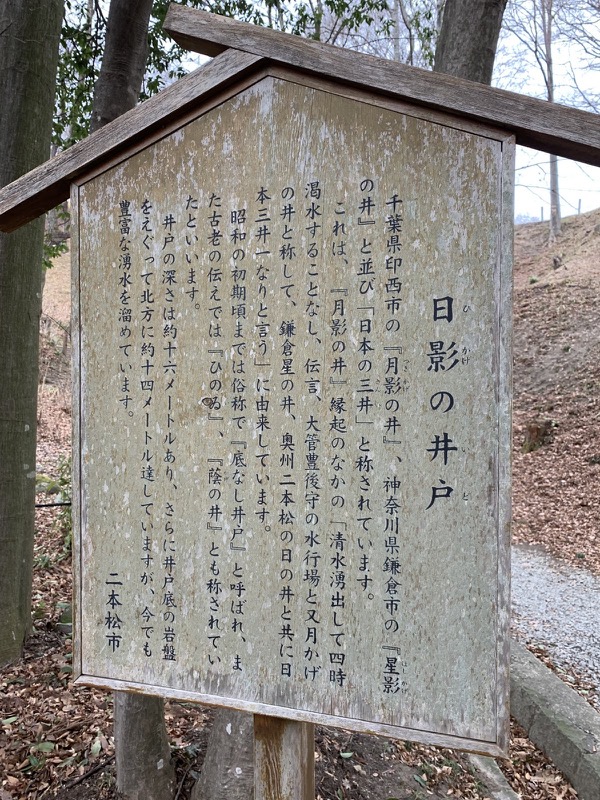 日影の井戸
ひ かげ い ど
千葉県印西市の『月影の井』、神奈川県鎌倉市の『星影
の井』と並び「日本の三井」と称されています。
これは、『月影の井』縁起のなかの「清水湧出して四時
渇水することなし、伝言、大管豊後守の水行場と又月かげ
の井と称して、鎌倉星の井、奥州二本松の日の井と共に日
本三井一なりと言う」に由来しています。
昭和の初期頃までは俗称で『底なし井戸』と呼ばれ、ま
た古老の伝えでは『ひのゐ』、『蔭の井』とも称されてい
たといいます。
井戸の深さは約十六メートルあり、さらに井戸底の岩盤
をえぐって北方に約十四メートル達していますが、今でも
豊富な湧水を溜めています。
二本松市